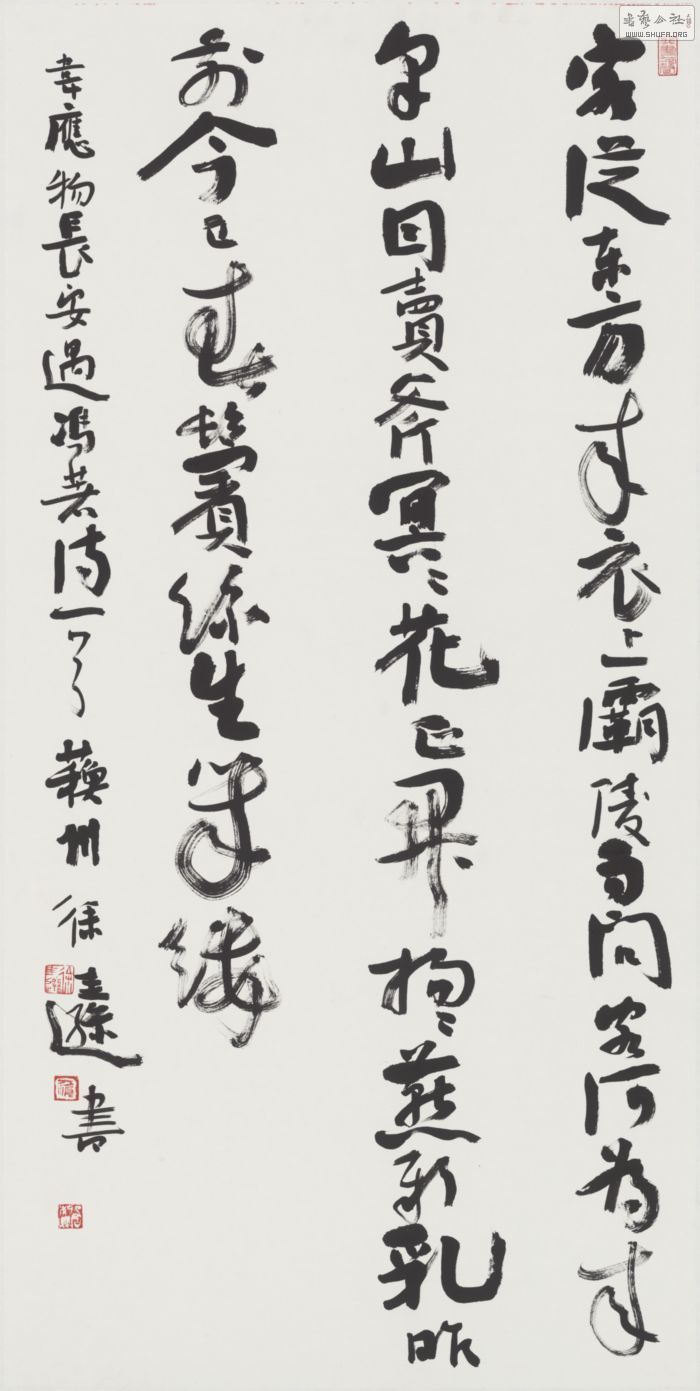 書藝公社
WWW.SHUFA.ORG
客從东方来衣上灞陵雨问客何为来
采山因賣斧冥〻花正開揚〻燕新乳昨
别今已春鬢絲生幾縷
韋應物長安過馮著詩一首 蘇州 徐圭遜書